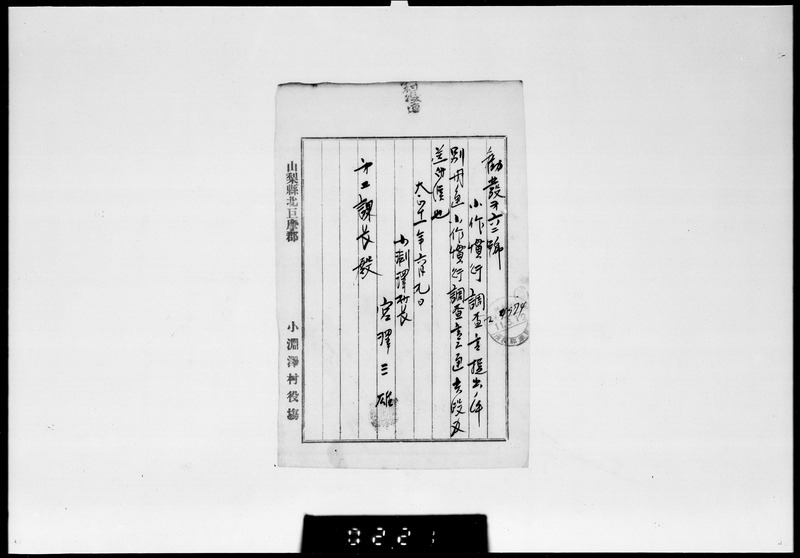 勧發第六二號
小作慣行調査書提出ノ件
別冊通小作慣行調査書二通貴段及
送付候也
大正十一年六月九日
小淵澤村長
宮澤三雄
第二課長殿
山梨縣北巨摩郡 小淵澤村役場
0221